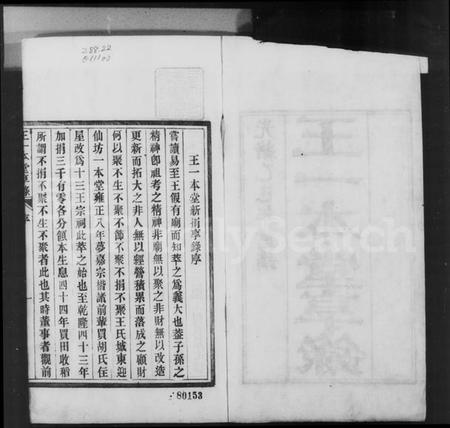 288.22
王一本堂新捐享錄序
嘗讀易至王假有廟而知萃之爲義大也蓋子孫之
精神卽祖考之精神非廟無以聚之非財無以改造
更新而拓大之非人無以經營積累而落成之顧財
何以聚不生不聚不節不聚不捐不聚王氏城東迎
仙坊一本堂雍正八年夢嘉宗衞諸前輩買胡氏住
屋改爲十三王宗祠此萃之始也至乾隆四十三年
加捐三千有零各分領本生息四十四年買田收稻
所謂不捐不聚不生不聚者此也其時董事者觀前
王一本堂享錄 序
一
80153
王一本堂